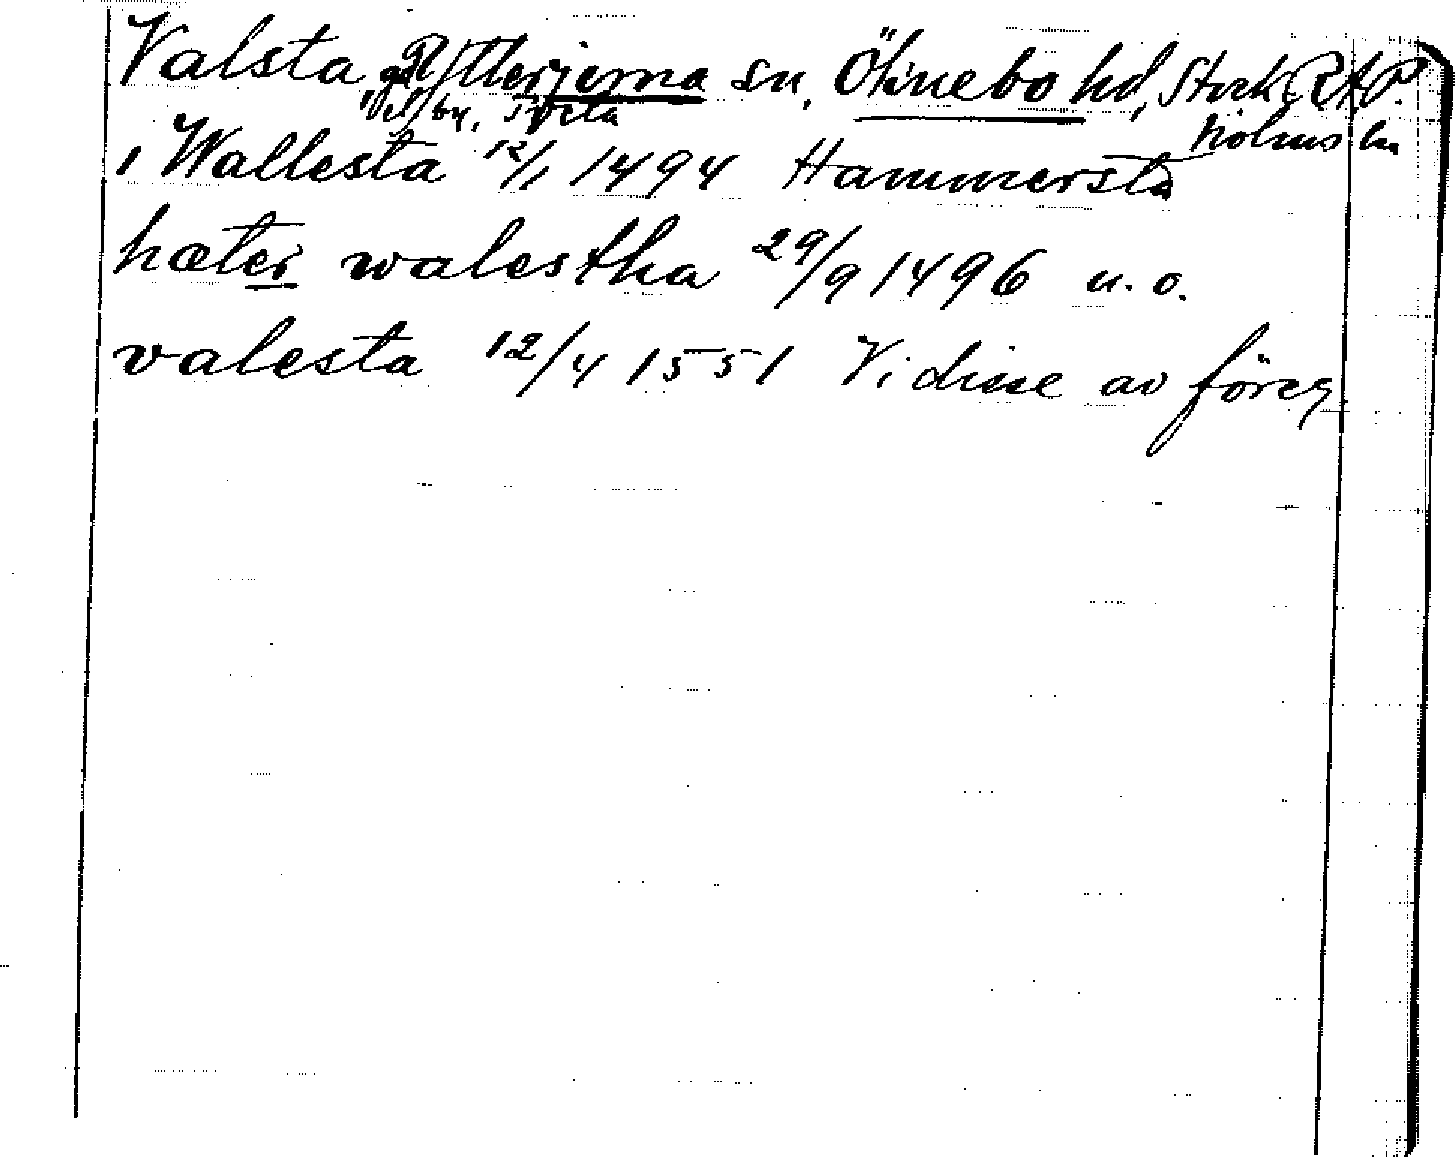 Valsta, Ytterjerna sn, Öknebo hd, Stock- R.A.P.
by, Tveta holms län
i Wallesta 12/1 1494 Hammersta
hæter walestha 29/9 1496 u. o.
valesta 12/4 1551 Vidisse av föreg.